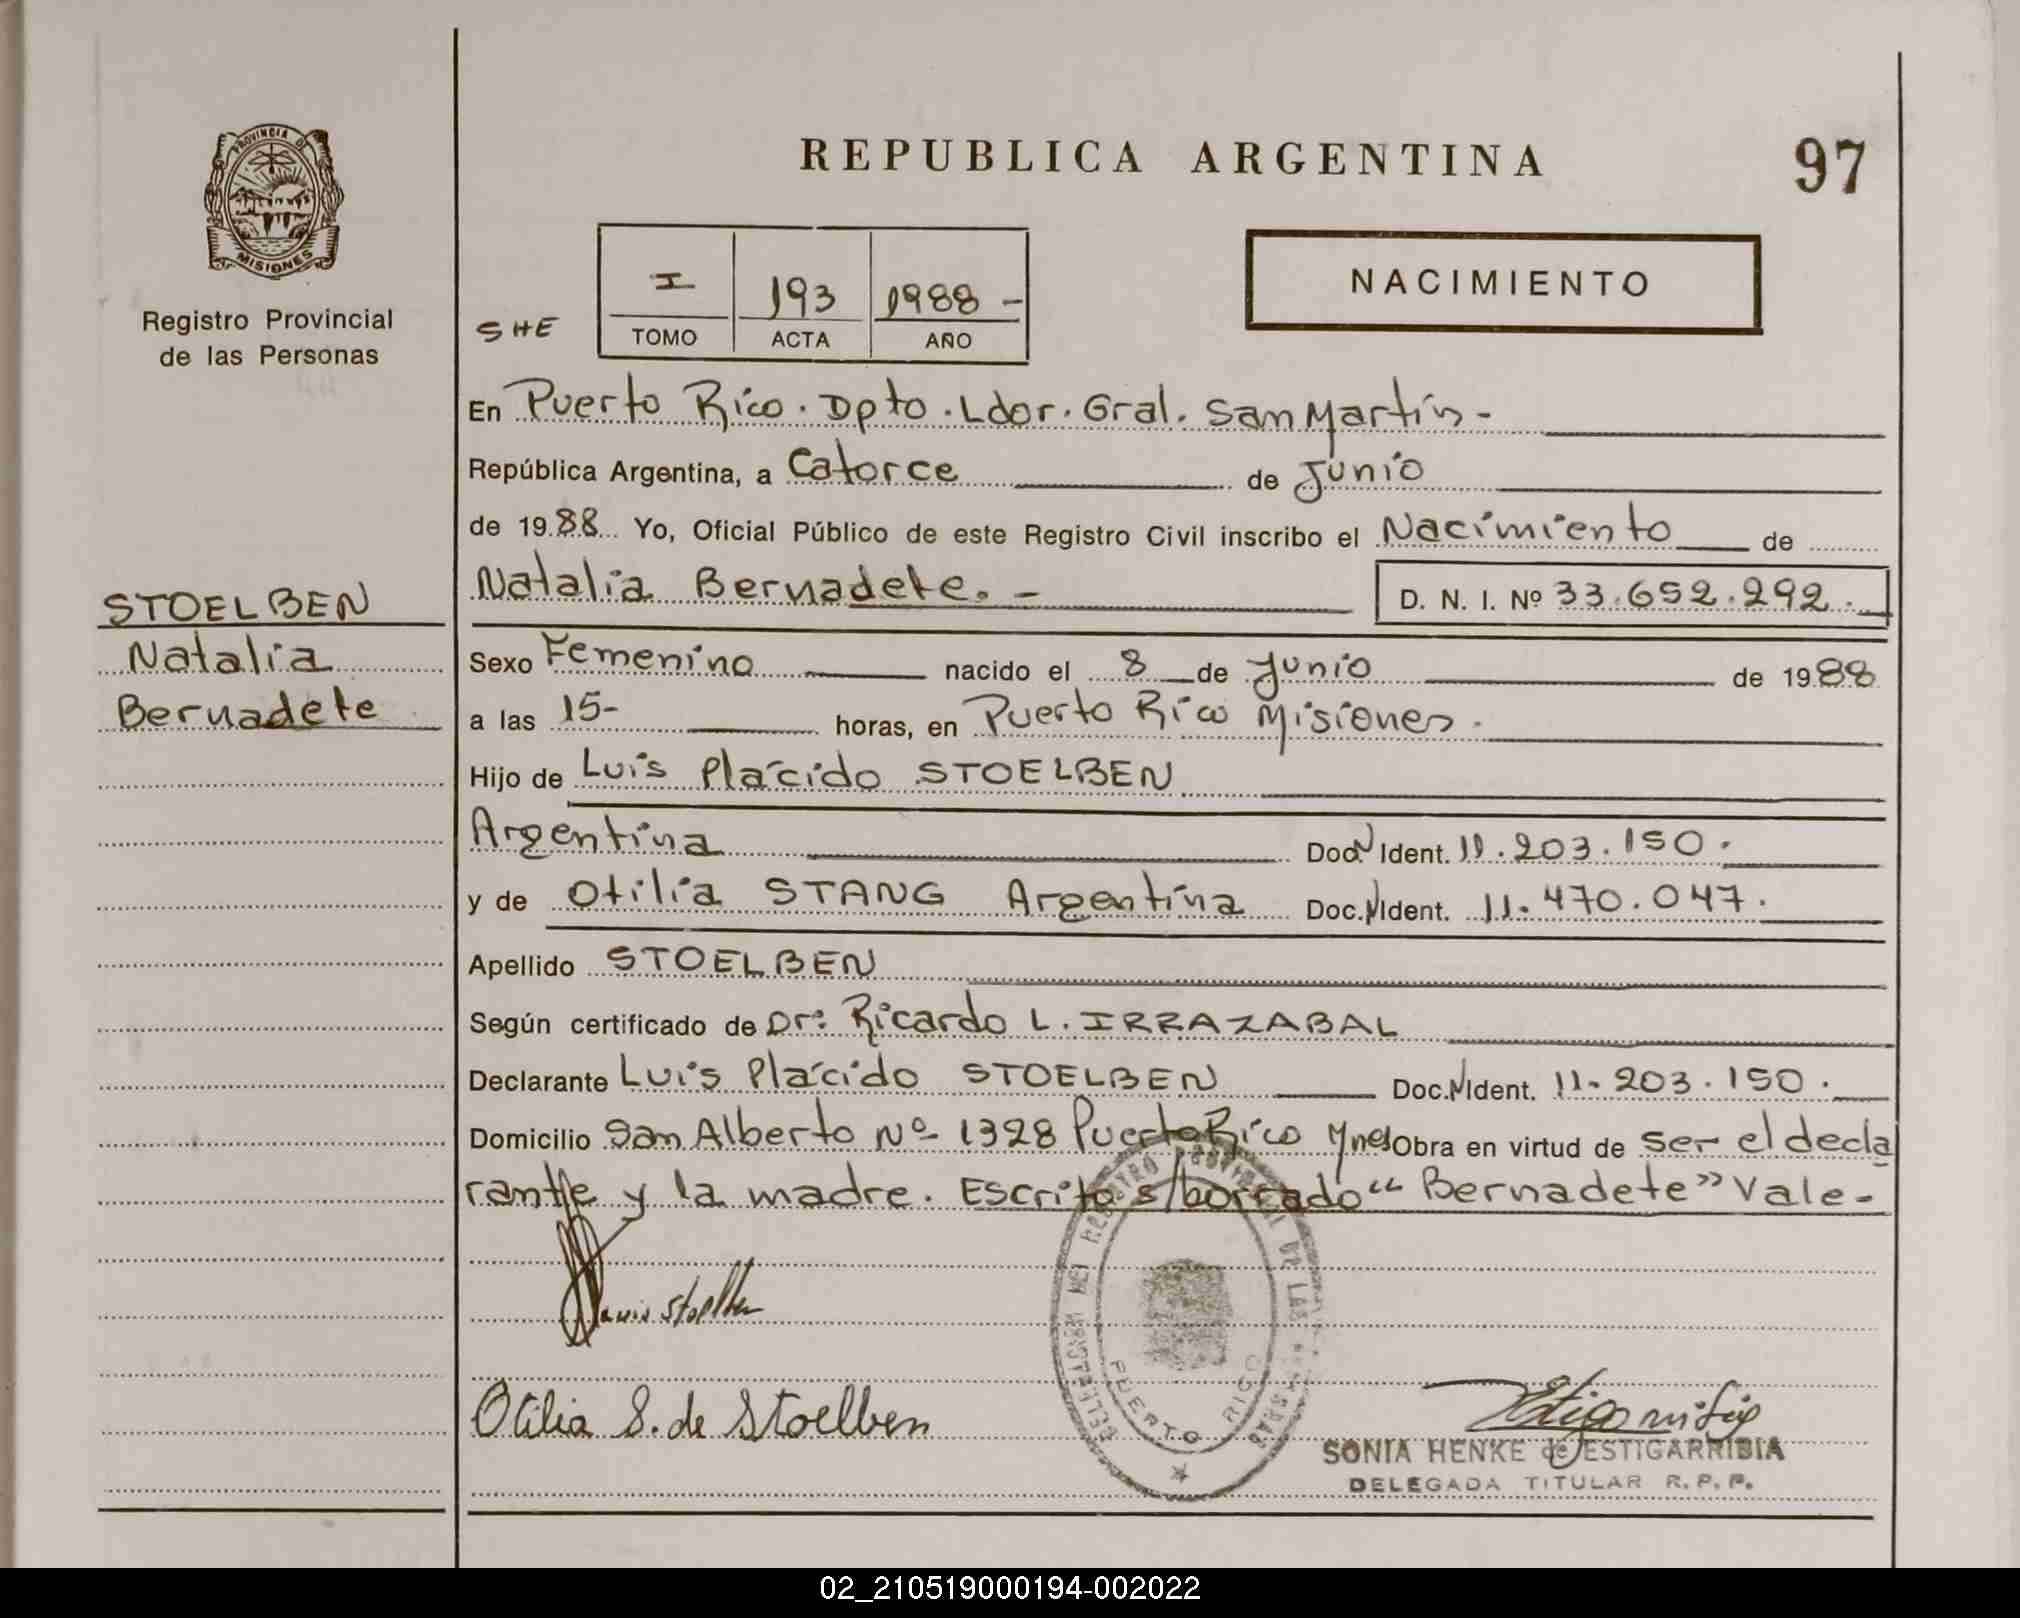 PROVINCIA DE
MISIONES
Registro Provincial
de las Personas
STOELBEN
Natalia
Bernadete
REPUBLICA ARGENTINA
97
NACIMIENTO
SHE
I 193 1988 -
TOMO ACTA AÑO
En Puerto Rico. Dpto. Ldor. Gral. San Martín -
República Argentina, a Catorce de Junio
de 1988 Yo, Oficial Público de este Registro Civil inscribo el Nacimiento de
Natalia Bernadete. - D. N. I. Nº 33.652.292.
Sexo Femenino nacido el 8 de Junio de 1988
a las 15- horas, en Puerto Rico Misiones.
Hijo de Luis Plácido STOELBEN
Argentina Doc. N Ident. 11.203.150.
y de Otilia STANG Argentina Doc. N Ident. 11.470.047.
Apellido STOELBEN
Según certificado de Dr: Ricardo L. IRRAZABAL
Declarante Luis Plácido STOELBEN Doc. N Ident. 11.203.150.
Domicilio San Alberto Nº 1328 Puerto Rico Mnes Obra en virtud de ser el decla
rante y la madre. Escrito s/borrado "Bernadete" Vale-
Luis Stoelben
Otilia S. de Stoelben
DELEGACION DEL REGISTRO PROVINCIAL DE LAS PERSONAS
PUERTO RICO
SONIA HENKE de ESTIGARRIBIA
DELEGADA TITULAR R. P. P.
02_210519000194-002022